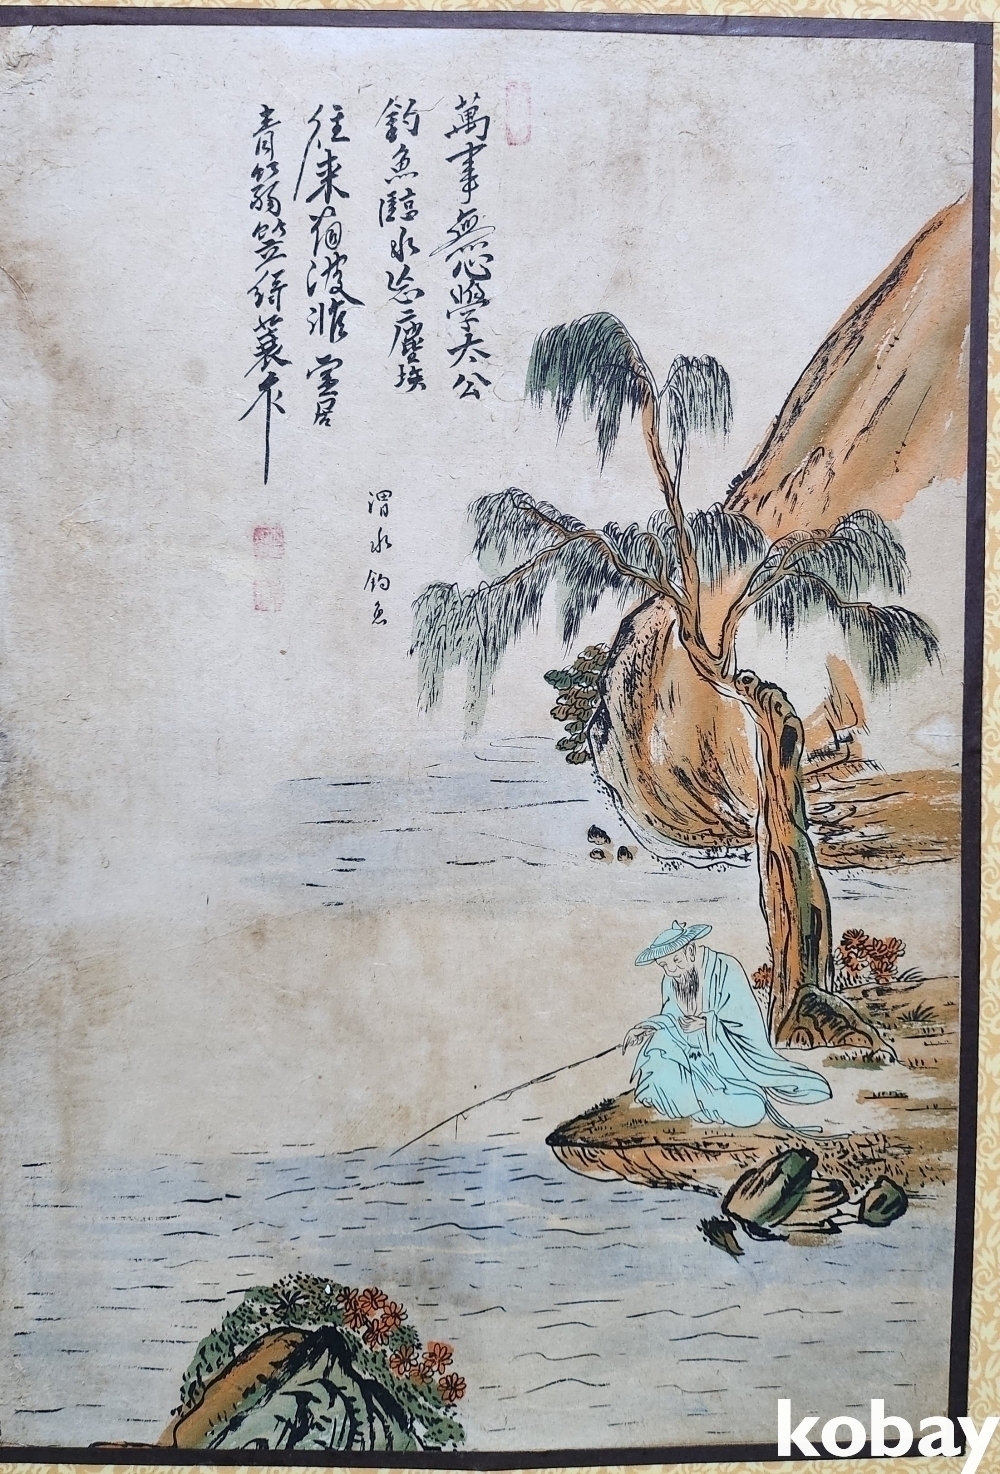 萬事無心學太公
釣魚臨水忘塵埃
往來有波非室居
青篛笠綠蓑衣
渭水釣魚
kobay